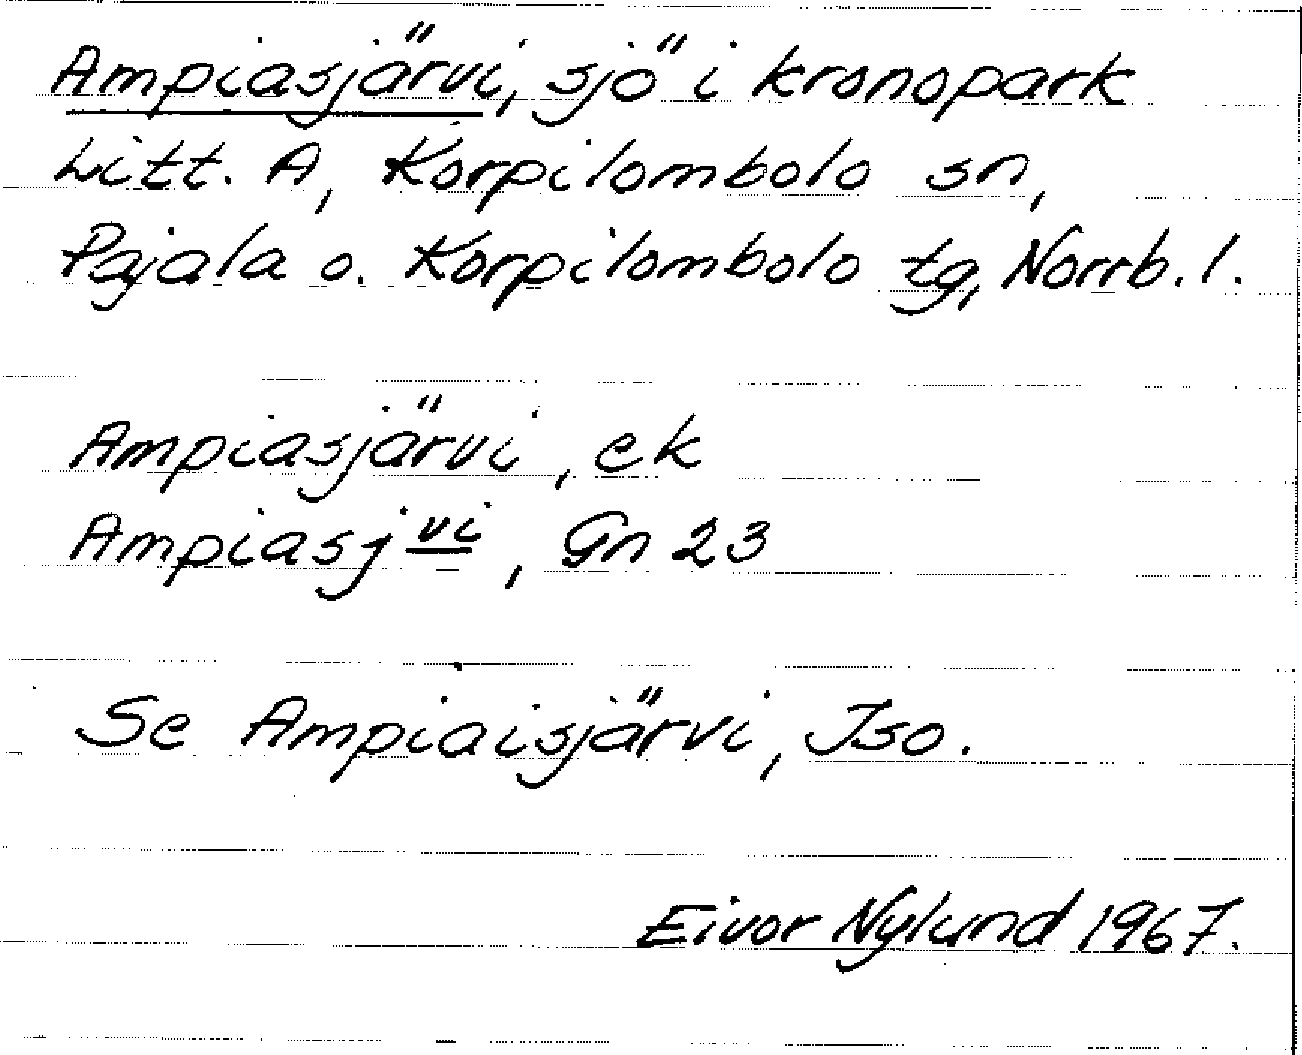 Ampiasjärvi, sjö i kronopark
Litt. A, Korpilombolo sn,
Pajala o. Korpilombolo tg, Norrb. l.
Ampiasjärvi, ek
Ampiasjvi, Gn 23
Se Ampiaisjärvi, Iso.
Eivor Nylund 1967.